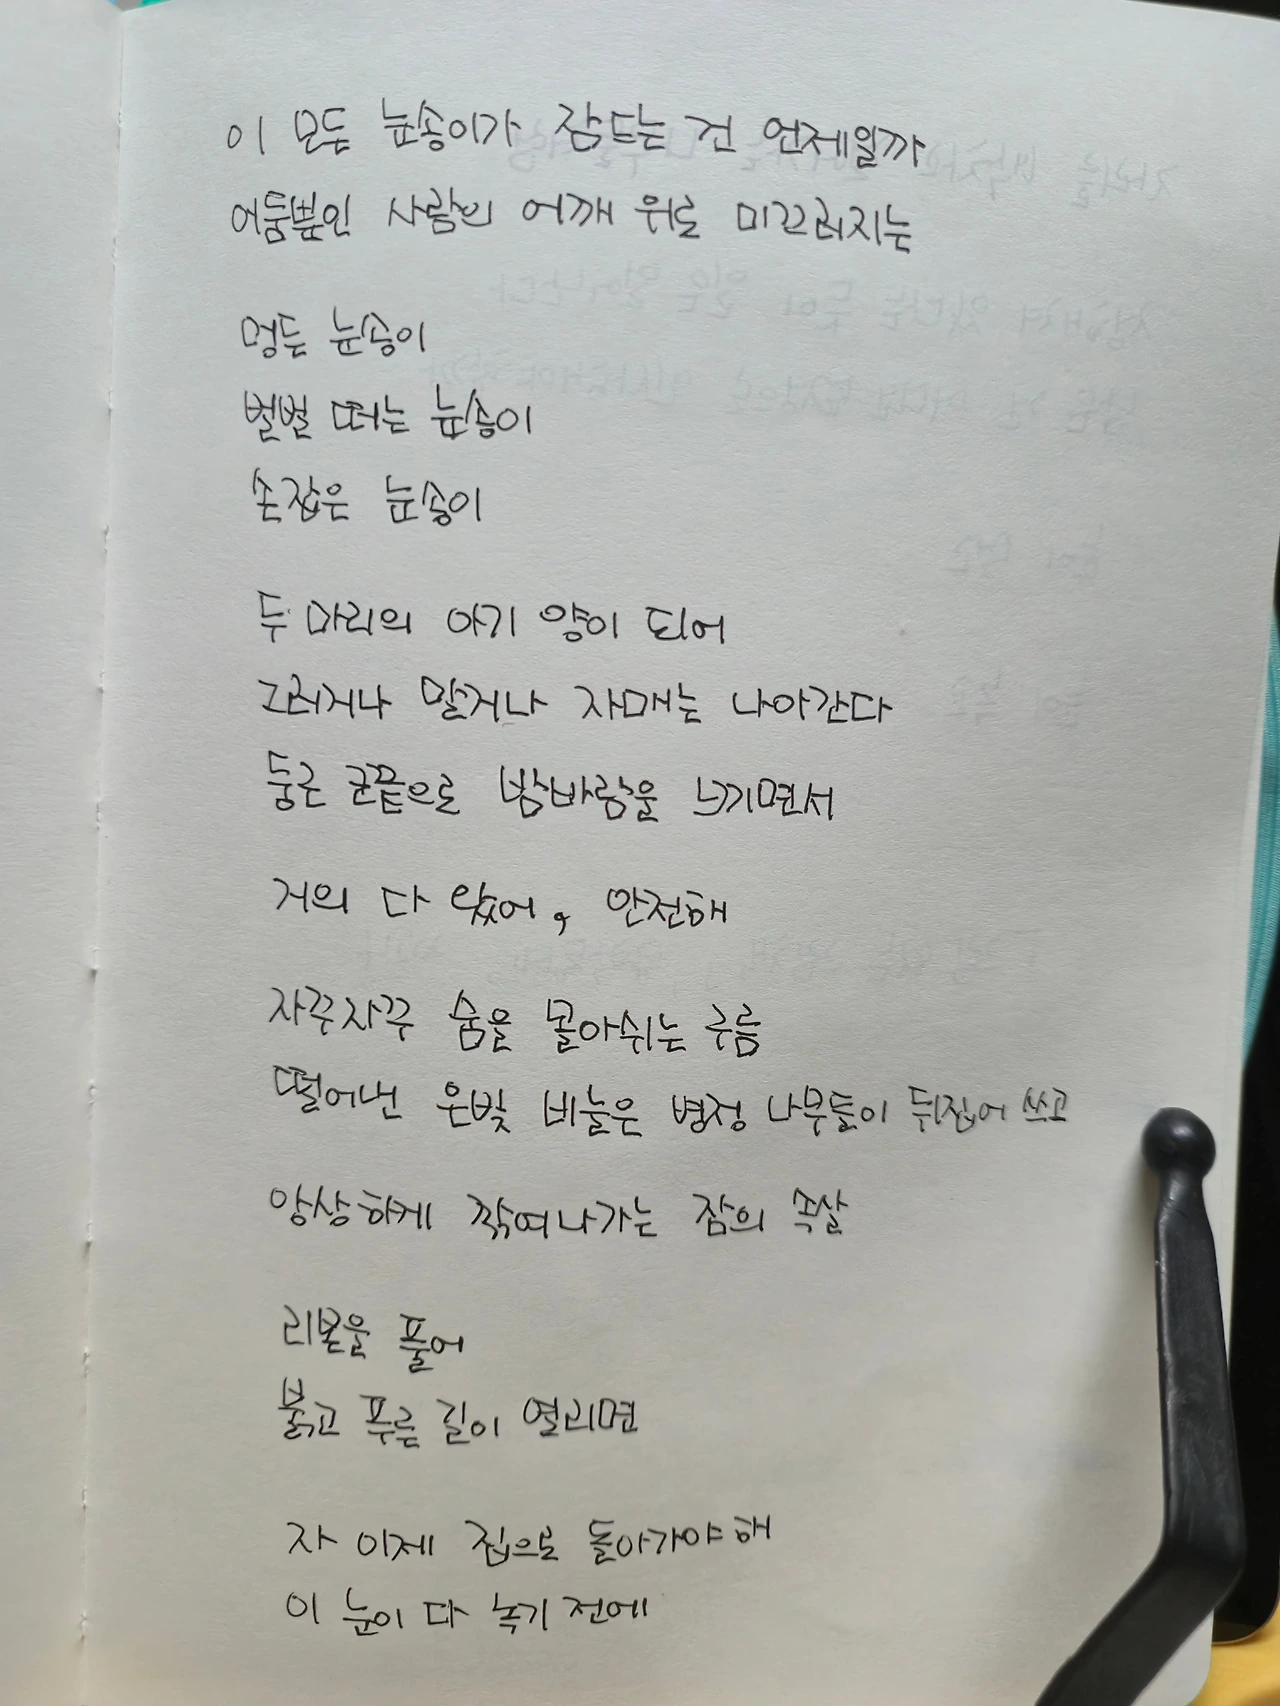 이 모든 눈송이가 잠드는 건 언제일까
어둠뿐인 사람의 어깨 위로 미끄러지는
멍든 눈송이
벌벌 떠는 눈송이
손잡은 눈송이
두 마리의 아기 양이 되어
그러거나 말거나 자매는 나아간다
둥근 코끝으로 밤바람을 느끼면서
거의 다 왔어, 안전해
자꾸자꾸 숨을 몰아쉬는 구름
떨어낸 은빛 비늘은 병정 나무들이 뒤집어 쓰고
앙상하게 깎여나가는 잠의 속살
리본을 풀어
붉고 푸른 길이 열리면
자 이제 집으로 돌아가야 해
이 눈이 다 녹기 전에